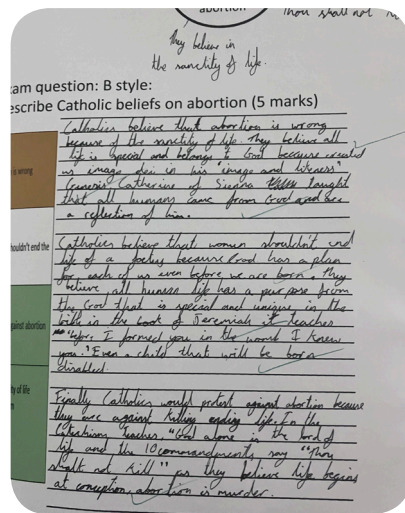 abortion
Thou shall not
They believe in
the sanctity of life.
am question: B style:
escribe Catholic beliefs on abortion (5 marks)
Catholics believe that abortion is wrong
because of the sanctity of life. They believe all
life is special and belongs to God because created
us imago dei in his "image and likeness"
Genesis. Catherine of Sienna taught
that all humans came from God and are
a reflection of him.
is wrong
Catholics believe that women shouldn't end
life of a foetus because God has a plan
for each of us even before we are born. They
believe all human life has a purpose from
the God that is special and unique in the
in the book of Jeremiah it teaches
"before I formed you in the womb I knew
you." Even a child that will be born
disabled.
houldn't end the
Finally Catholics would protest against abortion because
they are against killing ending life. In the
Catechism teaches, "God alone is the lord of
life and the 10 commandments say "Thou
shalt not kill" as they believe life begins
at conception, abortion is murder.
gainst abortion
ty of life